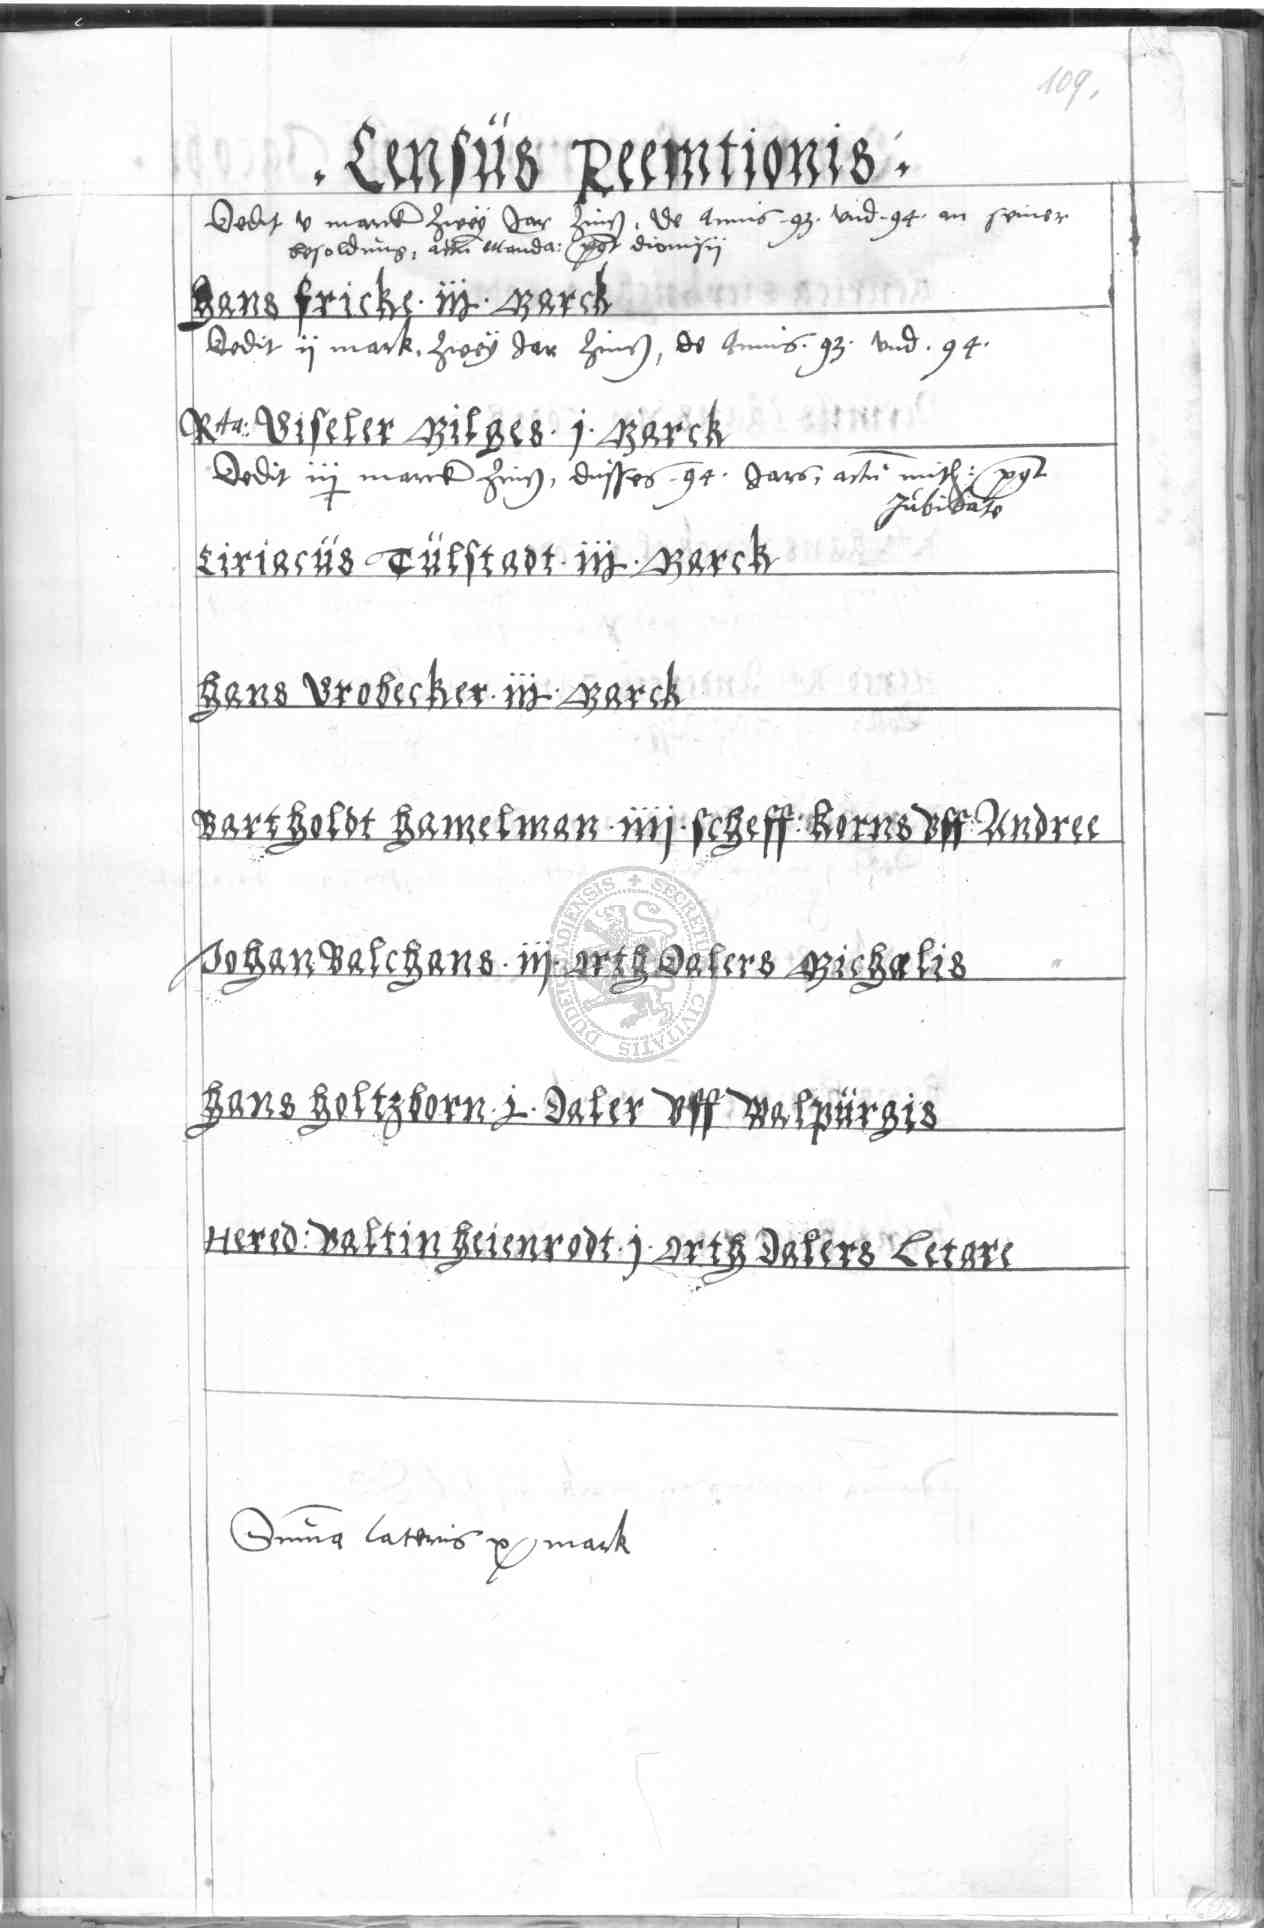 109.
· Censüs Reemtionis ·
Dedit v marck zwey Jar zinß, de Annis .93. vnd .94. an seiner
besoldung, actu Manda: post dionisij
Hans Fricke · iij · Marck
Dedit ij mark, zwey Jar zinß, de Annis .93. vnd .94.
Rta: Giseler Gilges · j · Marck
Dedit iij marck zinß, disses .94. Jars, actu mith: post
Jubilate
Ciriacüs Tülstadt · iij · Marck
Hans Vrobecker · iij · Marck
Bartholdt Hamelman · iiij · scheff: korns vff Andree
Johan Balchans · iij · orth Dalers Michaelis
Hans Holtzborn · j · Daler vff Walpürgis
Hered: Valtin Heienrodt · j · orth Dalers Letare
Summa lateris x mark
SECRETUM CIVITATIS DUDERSTADIENSIS